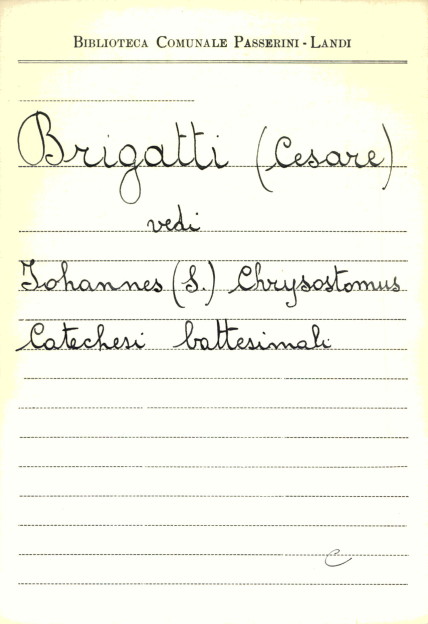 BIBLIOTECA COMUNALE PASSERINI - LANDI
Brigatti (Cesare)
vedi
Iohannes (S.) Chrysostomus
Catechesi battesimali
C